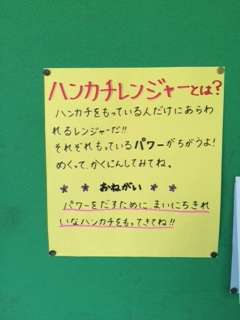 ハンカチレンジャーとは?
ハンカチをもっている人だけにあらわ
れるレンジャーだ!!
それぞれもっているパワーがちがうよ!
めくって、かくにんしてみてね。
* * おねがい * *
パワーをだすために まいにちきれ
いなハンカチをもってきてね!!